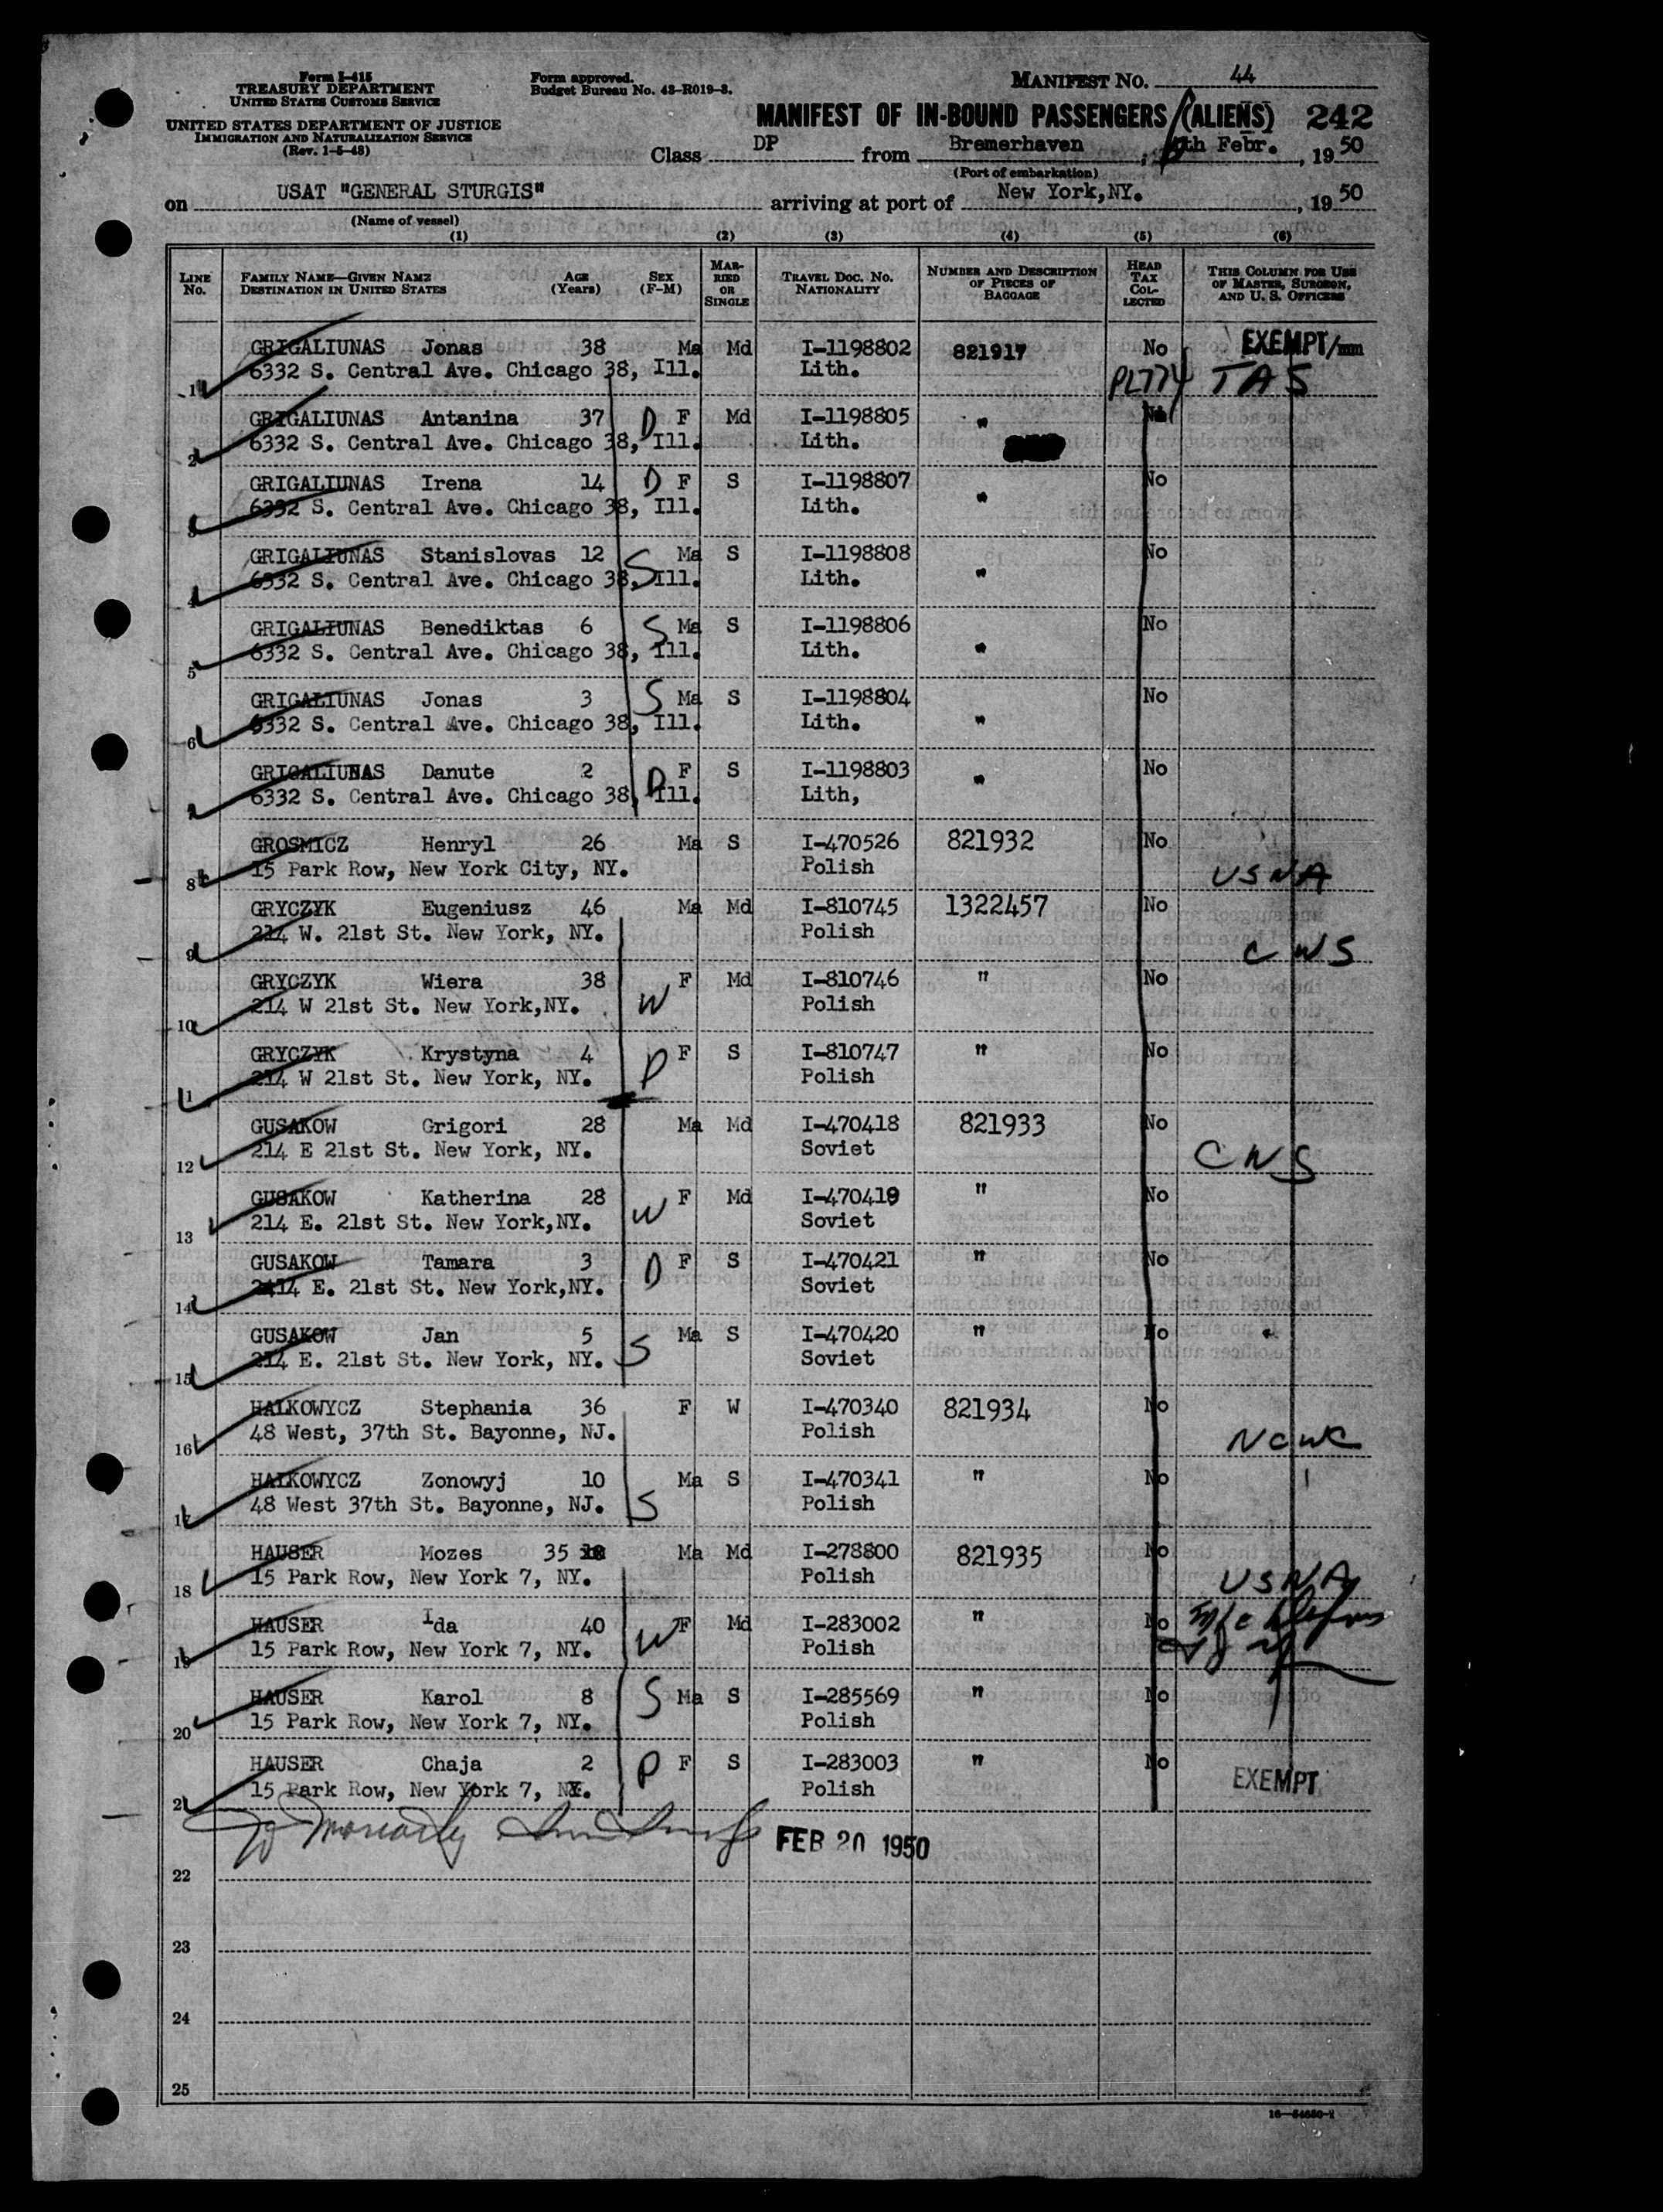 Form I-415
TREASURY DEPARTMENT
UNITED STATES CUSTOMS SERVICE
UNITED STATES DEPARTMENT OF JUSTICE
IMMIGRATION AND NATURALIZATION SERVICE
(Rev. 1-5-48)
Form approved.
Budget Bureau No. 43-R019-3.
MANIFEST No. 44
MANIFEST OF IN-BOUND PASSENGERS (ALIENS) 242
Class DP from Bremerhaven, th Febr., 1950
(Port of embarkation)
on USAT "GENERAL STURGIS" arriving at port of New York,NY., 1950
(Name of vessel)
(1) (2) (3) (4) (5) (6)
LINE No. FAMILY NAME—GIVEN NAME DESTINATION IN UNITED STATES AGE (Years) SEX (F-M) MARRIED OR SINGLE TRAVEL DOC. No. NATIONALITY NUMBER AND DESCRIPTION OF PIECES OF BAGGAGE HEAD TAX COLLECTED THIS COLUMN FOR USE OF MASTER, SURGEON, AND U. S. OFFICERS
GRIGALIUNAS Jonas 38 Ma Md I-1198802 821917 No EXEMPT/mm
1 6332 S. Central Ave. Chicago 38, Ill. Lith. PL774 TAS
GRIGALIUNAS Antanina 37 D F Md I-1198805 " No
2 6332 S. Central Ave. Chicago 38, Ill. Lith.
GRIGALIUNAS Irena 14 D F S I-1198807 " No
3 6332 S. Central Ave. Chicago 38, Ill. Lith.
GRIGALIUNAS Stanislovas 12 S Ma S I-1198808 " No
4 6332 S. Central Ave. Chicago 38, Ill. Lith.
GRIGALIUNAS Benediktas 6 S Ma S I-1198806 " No
5 6332 S. Central Ave. Chicago 38, Ill. Lith.
GRIGALIUNAS Jonas 3 S Ma S I-1198804 " No
6 6332 S. Central Ave. Chicago 38, Ill. Lith.
GRIGALIUNAS Danute 2 D F S I-1198803 " No
7 6332 S. Central Ave. Chicago 38, Ill. Lith,
GROSMICZ Henryl 26 Ma S I-470526 821932 No
8 15 Park Row, New York City, NY. Polish USNA
GRYCZYK Eugeniusz 46 Ma Md I-810745 1322457 No
9 214 W. 21st St. New York, NY. Polish CWS
GRYCZYK Wiera 38 W F Md I-810746 " No
10 214 W 21st St. New York,NY. Polish
GRYCZYK Krystyna 4 D F S I-810747 " No
11 214 W 21st St. New York, NY. Polish
GUSAKOW Grigori 28 Ma Md I-470418 821933 No
12 214 E 21st St. New York, NY. Soviet CWS
GUSAKOW Katherina 28 W F Md I-470419 " No
13 214 E. 21st St. New York,NY. Soviet
GUSAKOW Tamara 3 D F S I-470421 " No
14 214 E. 21st St. New York,NY. Soviet
GUSAKOW Jan 5 S Ma S I-470420 " No
15 214 E. 21st St. New York, NY. Soviet
HALKOWYCZ Stephania 36 F W I-470340 821934 No
16 48 West, 37th St. Bayonne, NJ. Polish NCWC
HALKOWYCZ Zonowyj 10 S Ma S I-470341 " No
17 48 West 37th St. Bayonne, NJ. Polish
HAUSER Mozes 35 Ma Md I-278800 821935 No
18 15 Park Row, New York 7, NY. Polish USNA
HAUSER Ida 40 W F Md I-283002 " No
19 15 Park Row, New York 7, NY. Polish
HAUSER Karol 8 S Ma S I-285569 " No
20 15 Park Row, New York 7, NY. Polish
HAUSER Chaja 2 D F S I-283003 " No
21 15 Park Row, New York 7, NY. Polish EXEMPT
FEB 20 1950
22
23
24
25